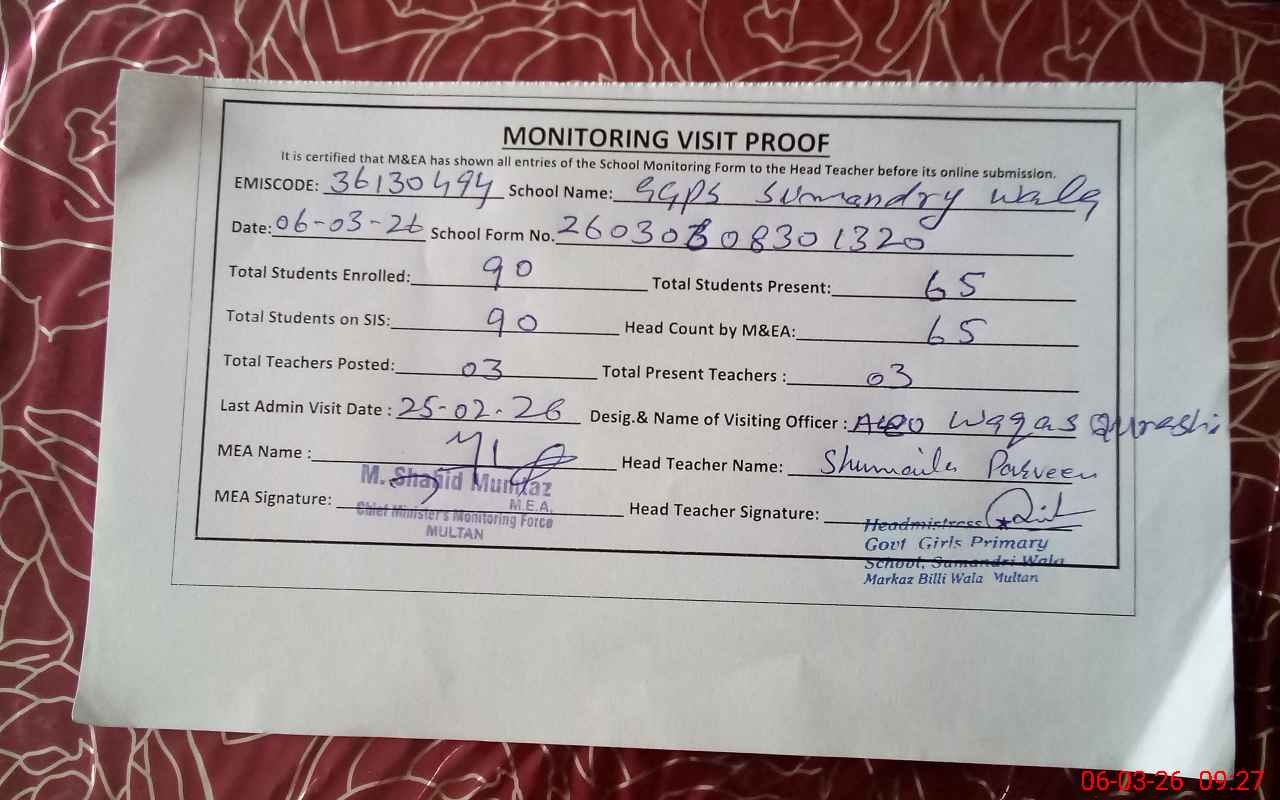 MONITORING VISIT PROOF
It is certified that M&EA has shown all entries of the School Monitoring Form to the Head Teacher before its online submission.
EMISCODE: 36130494 School Name: GGPS Sumandry Wala
Date: 06-03-26 School Form No. 260308301320
Total Students Enrolled: 90 Total Students Present: 65
Total Students on SIS: 90 Head Count by M&EA: 65
Total Teachers Posted: 03 Total Present Teachers : 03
Last Admin Visit Date : 25-02-26 Desig.& Name of Visiting Officer : AEO Waqas Qurashi
MEA Name : Head Teacher Name: Shumaila Parveen
M. Shahid Mumtaz
MEA Signature: M.E.A. Head Teacher Signature:
Chief Minister's Monitoring Force
MULTAN
Headmistress
Govt Girls Primary
School, Sumandri Wala
Markaz Billi Wala Multan
06-03-26 09:27